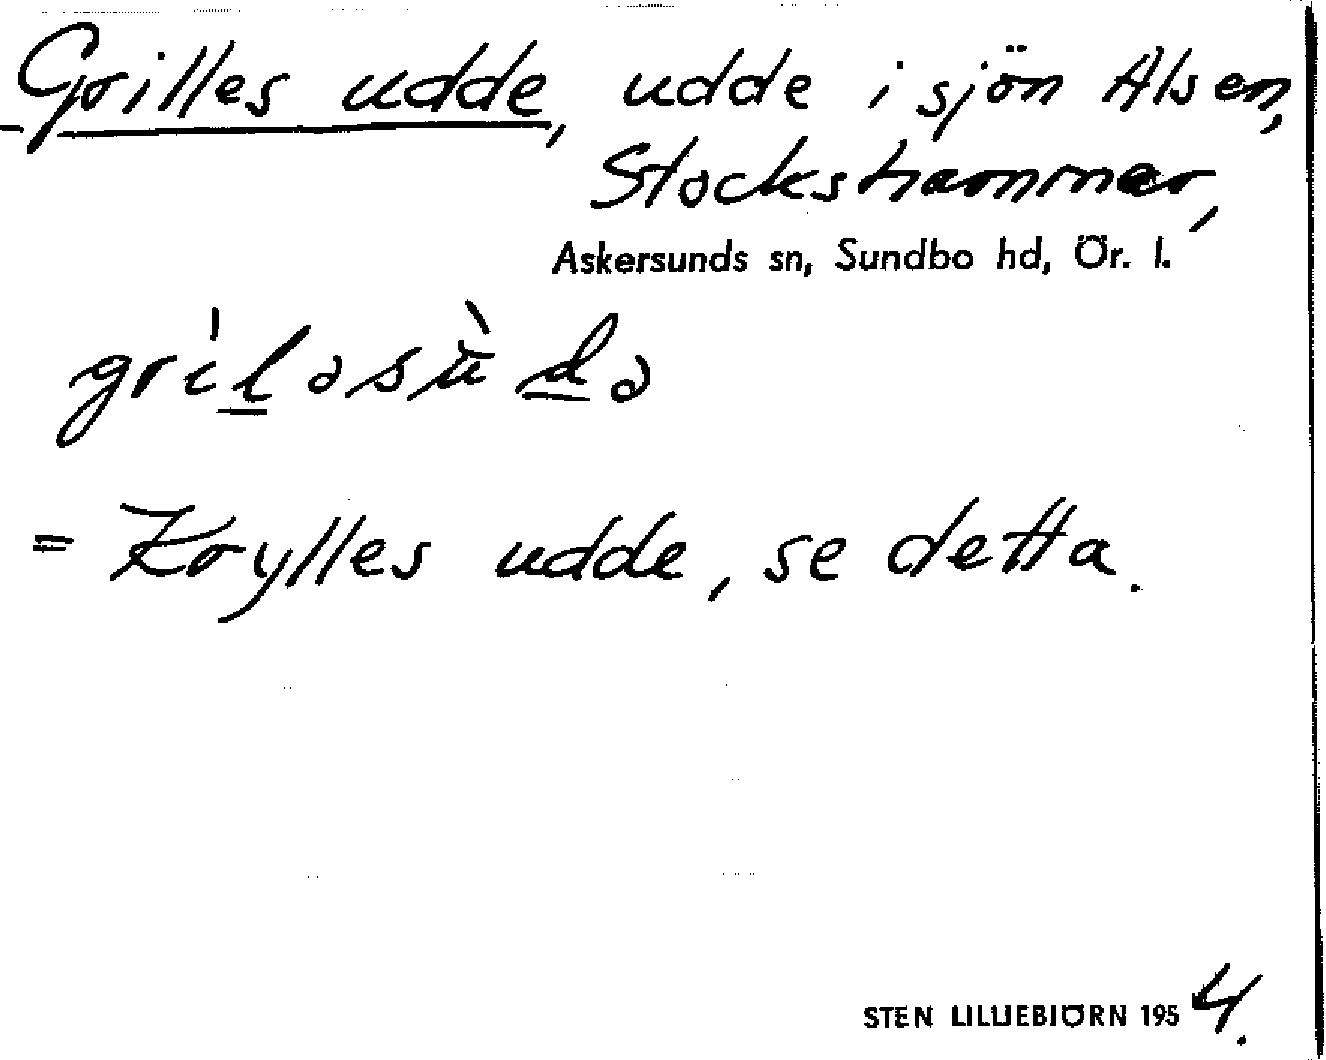 Grilles udde, udde i sjön Alsen,
Stockshammar,
Askersunds sn, Sundbo hd, Ör. l.
grìləsùdə
= Krylles udde, se detta.
STEN LILLIEBIÖRN 1954.